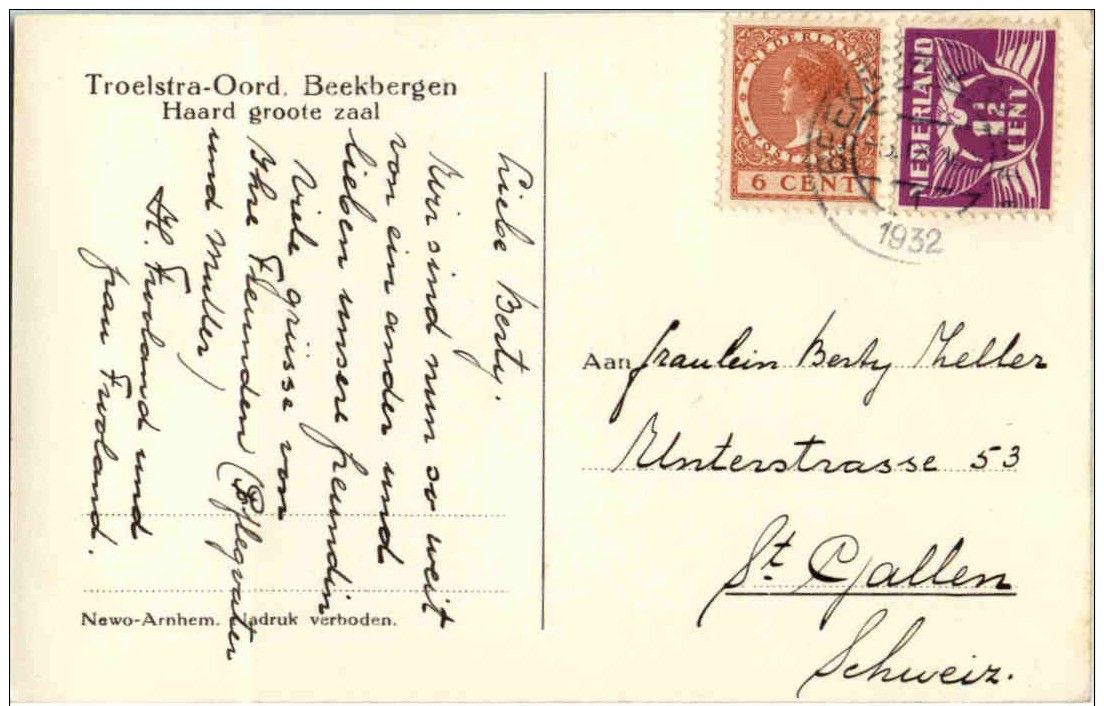 Troelstra-Oord. Beekbergen
Haard groote zaal
Liebe Berty.
Wir sind nun so weit
von ein ander und
lieben unsere freundin
Viele grüsse von
Ihre Freunden (Pflegvater
und Mutter)
H. Froland und
frau Froland.
Newo-Arnhem. Nadruk verboden.
NEDERLAND
POSTZEGEL
6 CENT
NEDERLAND
1½
CENT
1932
Aan fraulein Berty Zeller
Unterstrasse 53
St. Gallen
Schweiz.